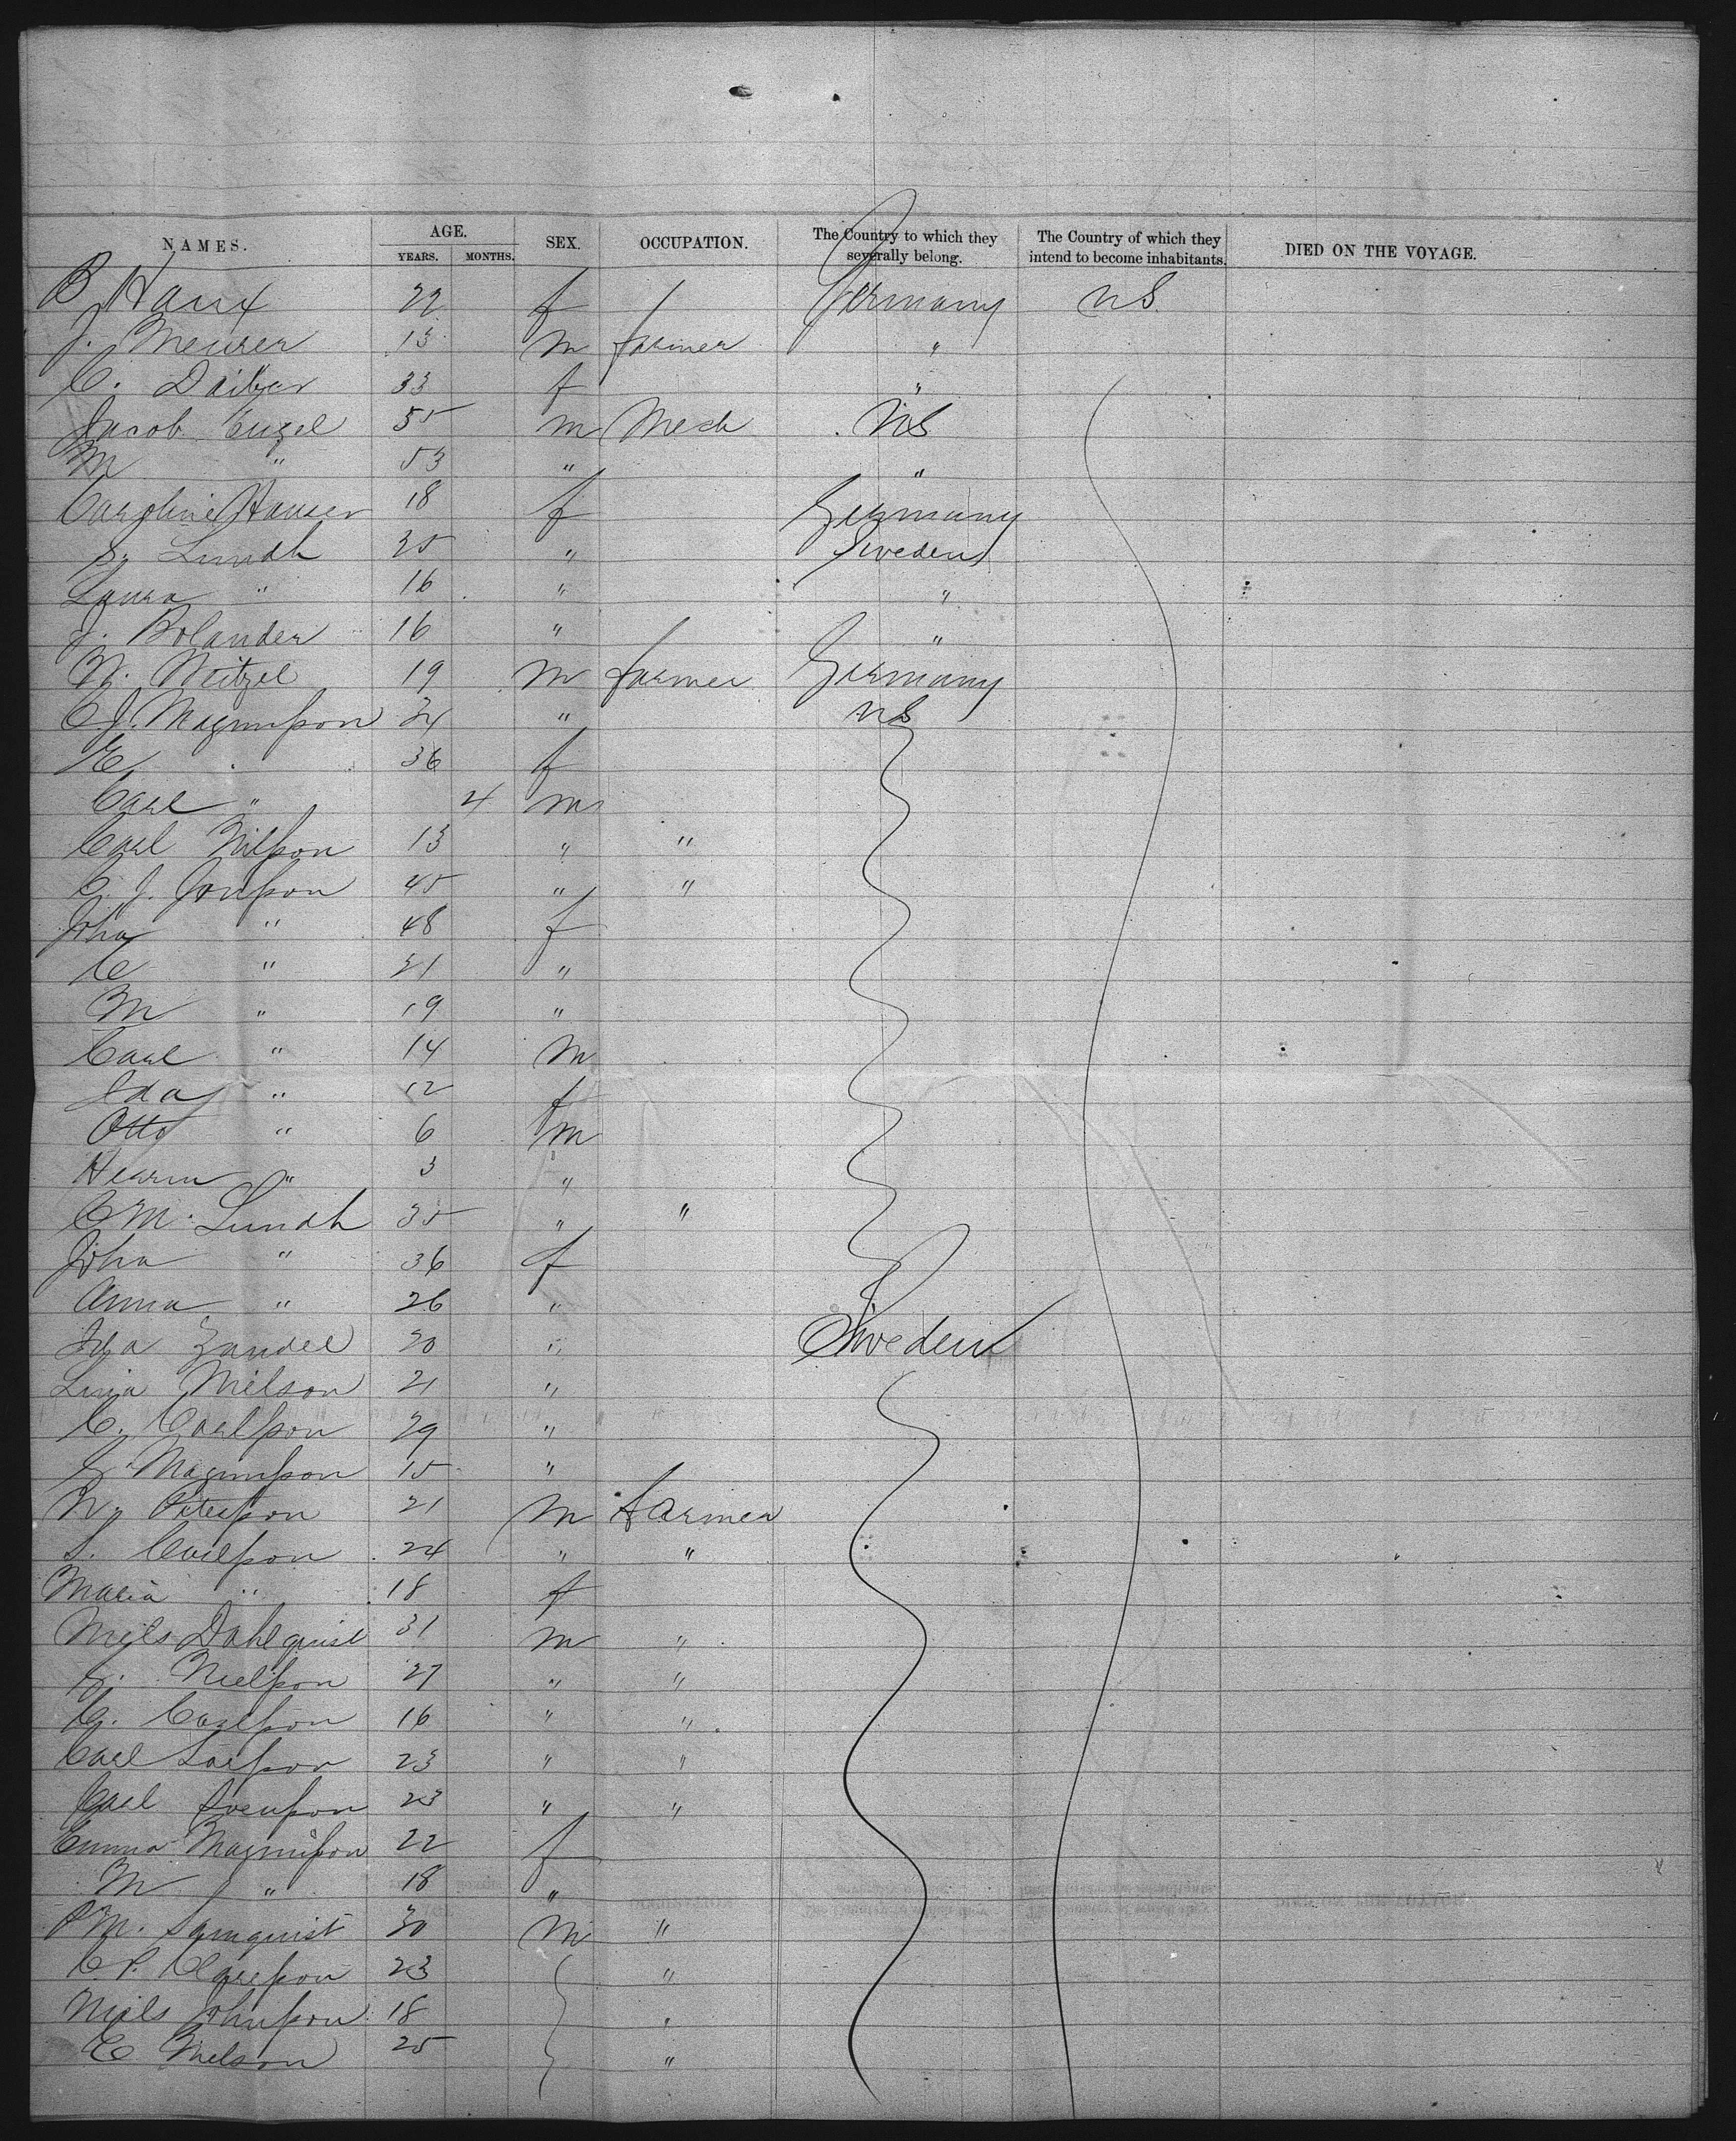 NAMES. AGE. SEX. OCCUPATION. The Country to which they severally belong. The Country of which they intend to become inhabitants. DIED ON THE VOYAGE.
YEARS. MONTHS.
B Haux 22 f Germany US.
J. Meurer 13 m farmer "
C. Daiber 33 f "
Jacob Engel 55 m Mech US
M " 53 " "
Caroline Hauser 18 f Germany
S. Lundh 25 " Sweden
Laura " 16 " "
J. Bolander 16 " "
W. Weitzel 19 m farmer Germany
C J. Magnusson 34 " US
E 36 f
Carl " 4 m
Carl Nilsson 13 " "
C. J. Jonsson 45 " "
Joha " 48 f
C " 21 "
M " 19 "
Carl " 14 m
Ida " 12 f
Otto " 6 m
" 3 "
C M. Lundh 35 " "
Joha " 36 f
Anna " 26 "
Ida Zandel 20 " Sweden
Lina Nilson 21 "
C. Carlsson 29 "
S Magnusson 15 "
N. Petersson 21 m farmer
S. Carlsson 24 " "
Maria " 18 f
Niels Dahlquist 31 m "
J. Nielsson 27 " "
G. Carlsson 16 " "
Carl Larsson 23 " "
Carl Svensson 23 " "
Emma Magnusson 22 f
M " 18 "
P M. 30 m "
C. P. Clarsson 23 "
Niels Johnsson 18 "
C Nielson 25 "